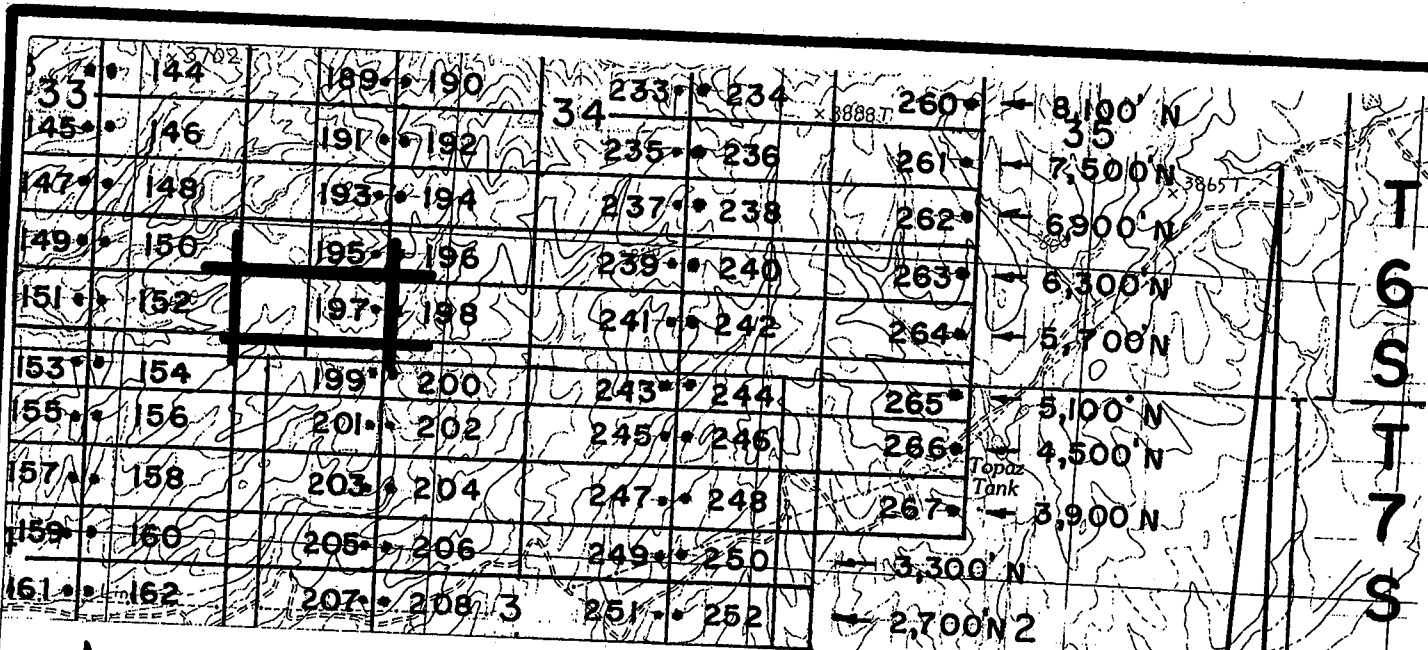 144 ×3702 189 190 233 234 260 8,100' N
33 34 ×3888T 35
145 146 191 192 235 236 261 7,500' N
147 148 193 194 237 238 262 6,900' N 3865T
149 150 195 196 239 240 263 6,300' N
151 152 197 198 241 242 264 5,700' N
153 154 199 200 243 244 265 5,100' N
155 156 201 202 245 246 266 4,500' N
Topaz
Tank
157 158 203 204 247 248 267 3,900' N
159 160 205 206 249 250 3,300' N
161 162 207 208 3 251 252 2,700' N 2
T
6
S
T
7
S